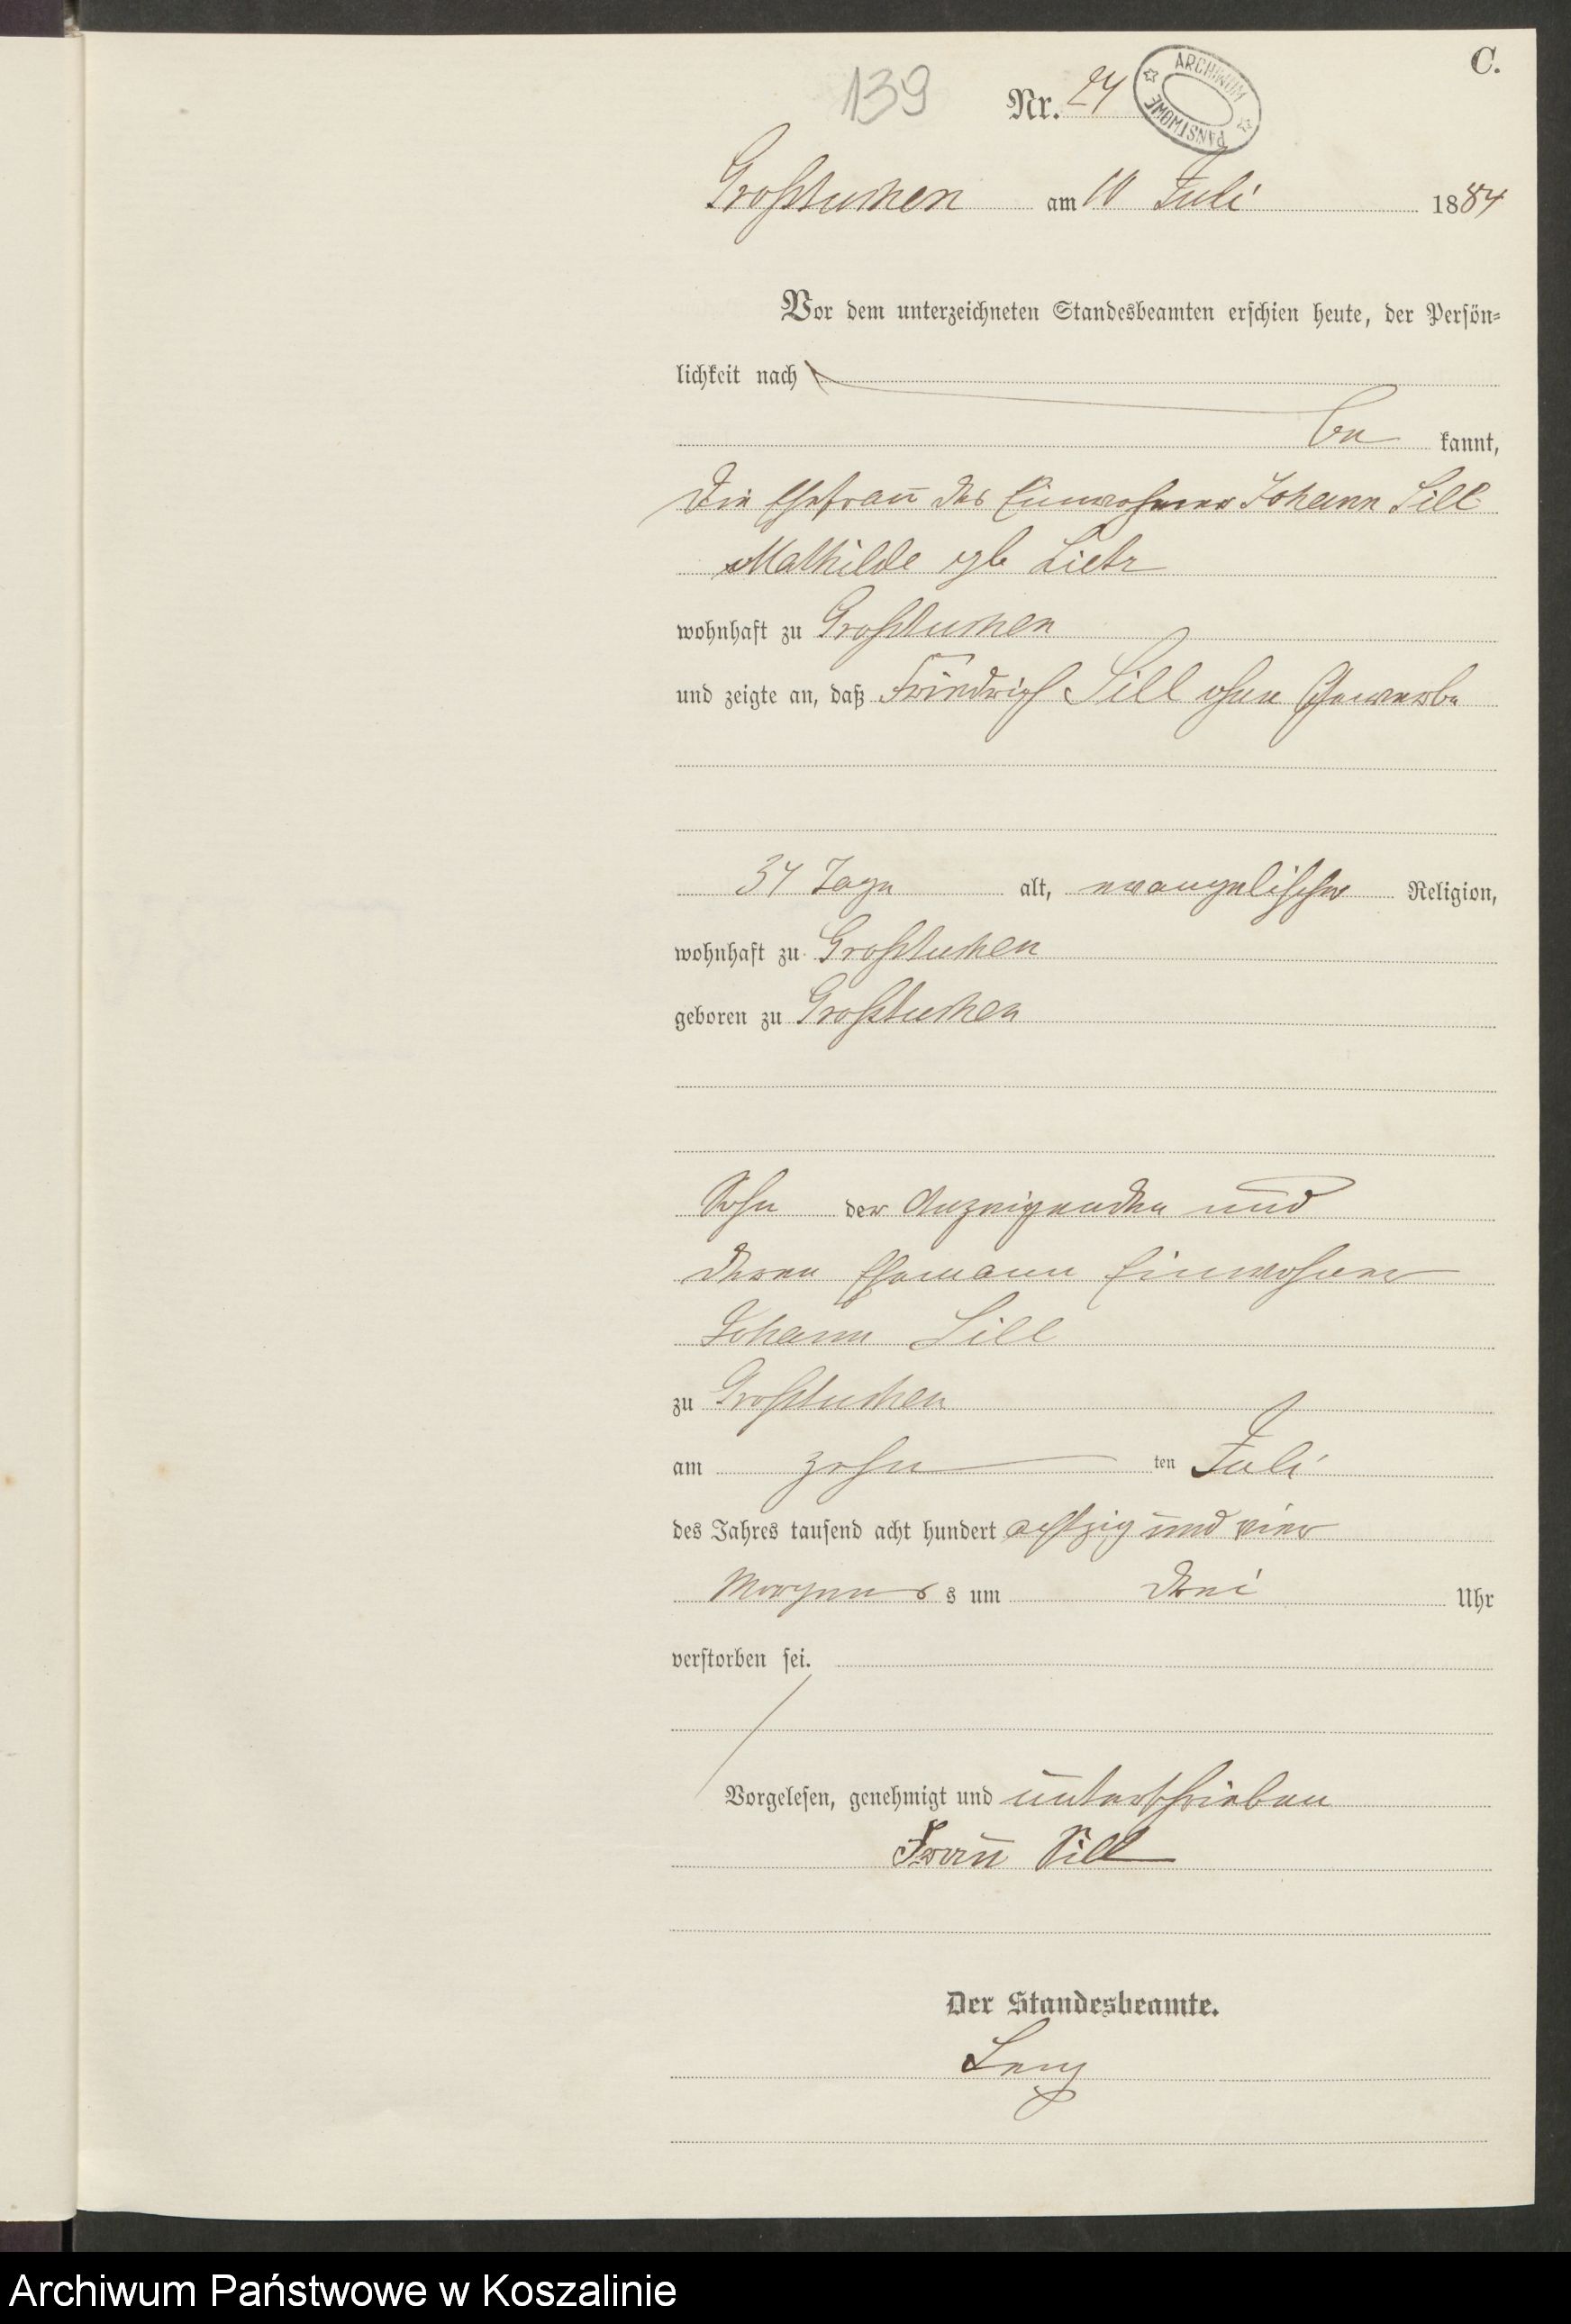 C.
139
Nr. 24
ARCHIWUM PAŃSTWOWE
Großtuchen am 10 Juli 1884
Vor dem unterzeichneten Standesbeamten erschien heute, der Persön-
lichkeit nach
be kannt,
die Ehefrau des Einwohner Johann Sill
Mathilde geb Lietz
wohnhaft zu Großtuchen
und zeigte an, daß Friedrich Sill ohne Gewerbe
34 Tage alt, evangelischer Religion,
wohnhaft zu Großtuchen
geboren zu Großtuchen
Sohn der Anzeigenden und
deren Ehemann Einwohner
Johann Sill
zu Großtuchen
am zehn ten Juli
des Jahres tausend acht hundert achtzig und vier
Morgens s um drei Uhr
verstorben sei.
Vorgelesen, genehmigt und unterschrieben
Frau Sill
Der Standesbeamte.